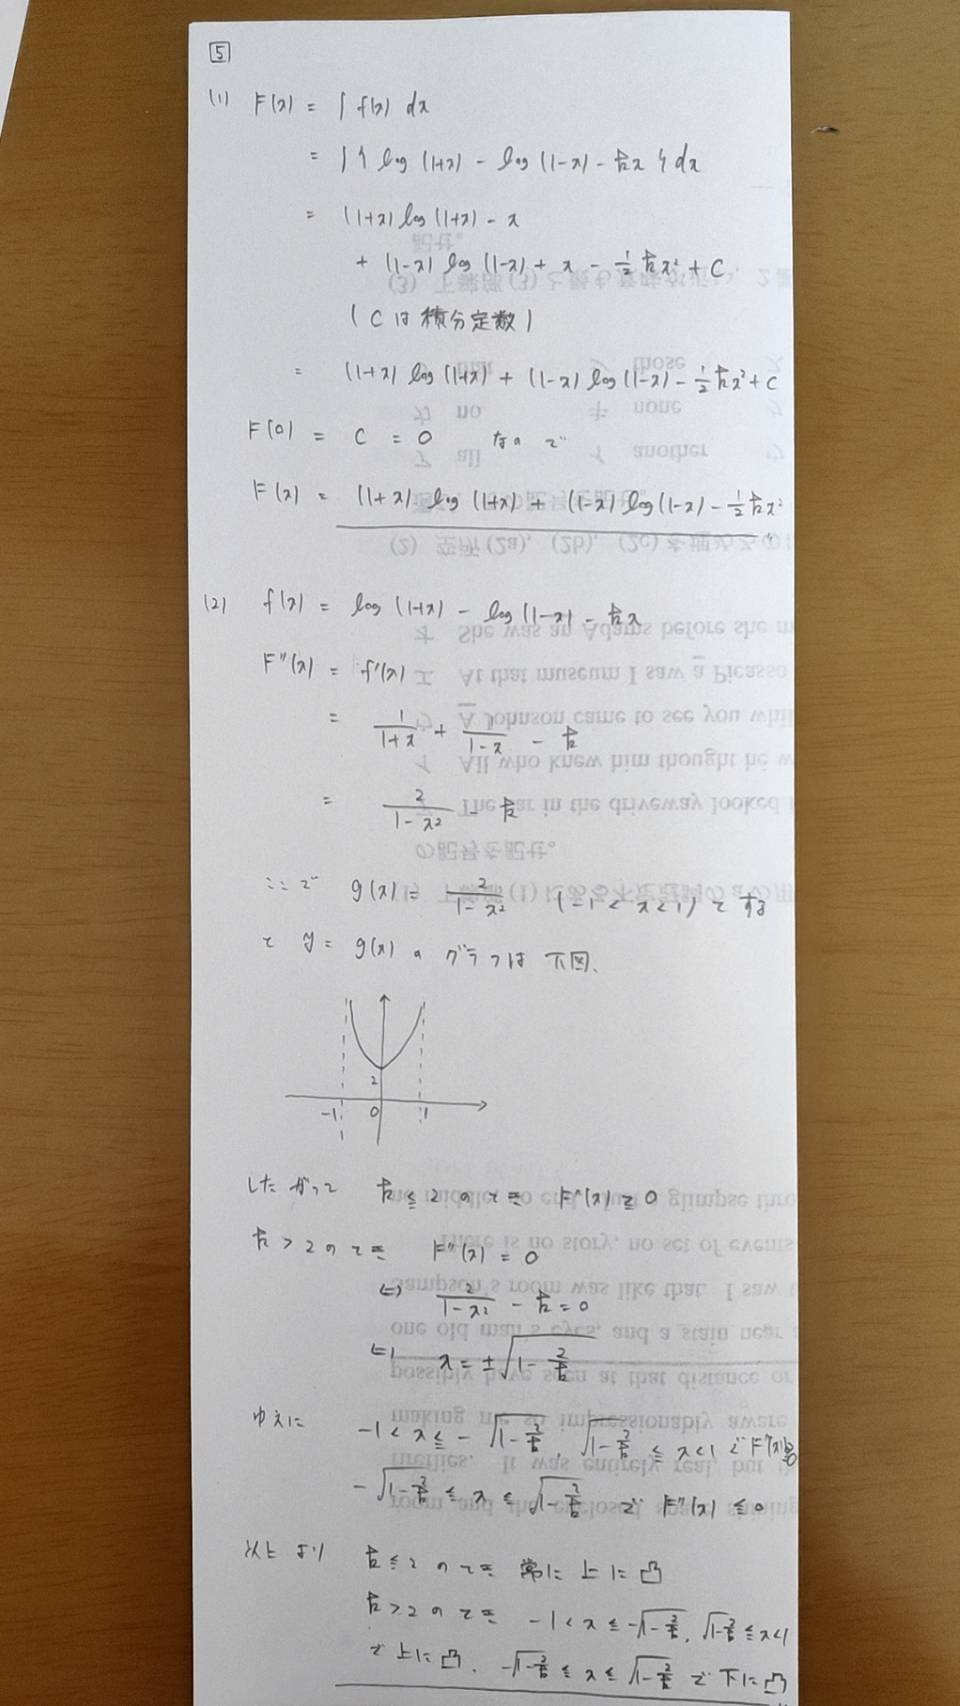 5
(1) F(x) = ∫ f(x) dx
= ∫ { log (1+x) - log (1-x) - kx } dx
= (1+x) log (1+x) - x
+ (1-x) log (1-x) + x - 1/2 kx² + C
( C は 積分定数 )
= (1+x) log (1+x) + (1-x) log (1-x) - 1/2 kx² + C
F(0) = C = 0 なので
F(x) = (1+x) log (1+x) + (1-x) log (1-x) - 1/2 kx²
(2) f(x) = log (1+x) - log (1-x) - kx
F''(x) = f'(x)
= 1/(1+x) + 1/(1-x) - k
= 2/(1-x²) - k
ここで g(x) = 2/(1-x²) (-1 < x < 1) とする
と y = g(x) の グラフは 下図、
2
-1 0 1
したがって k ≦ 2 のとき F''(x) ≧ 0
k > 2 のとき F''(x) = 0
⇔ 2/(1-x²) - k = 0
⇔ x = ±√(1 - 2/k)
ゆえに -1 < x ≦ -√(1-2/k), √(1-2/k) ≦ x < 1 で F''(x) ≧ 0
-√(1-2/k) ≦ x ≦ √(1-2/k) で F''(x) ≦ 0
以上より k ≦ 2 のとき 常に 上に凸
k > 2 のとき -1 < x ≦ -√(1-2/k), √(1-2/k) ≦ x < 1
で 上に凸、 -√(1-2/k) ≦ x ≦ √(1-2/k) で 下に凸